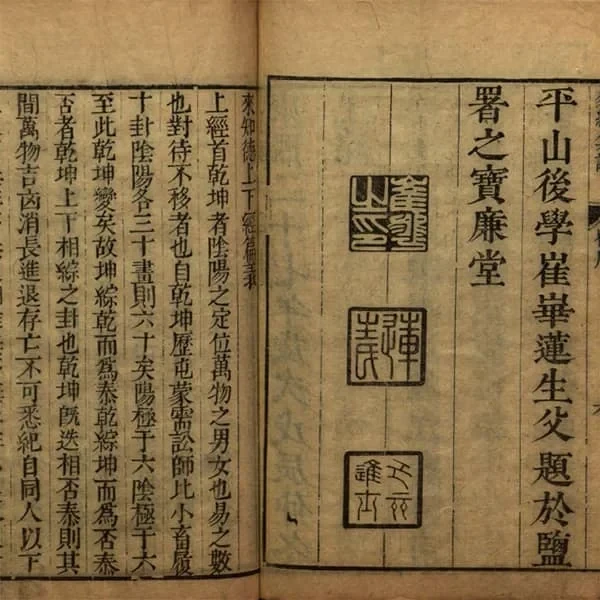 平山後學崔華蓮生父題於鹽
署之寶廉堂
崔華之印
蓮生
己亥進士
來知德上下經篇義
上經首乾坤者陰陽之定位萬物之男女也易之數
也對待不移者也自乾坤歷屯蒙需訟師比小畜履
十卦陰陽各三十畫則六十矣陽極于六陰極于六
至此乾坤變矣故坤綜乾而爲泰乾綜坤而爲否泰
否者乾坤上下相綜之卦也乾坤旣迭相否泰則其
間萬物吉凶消長進退存亡不可悉紀自同人以下